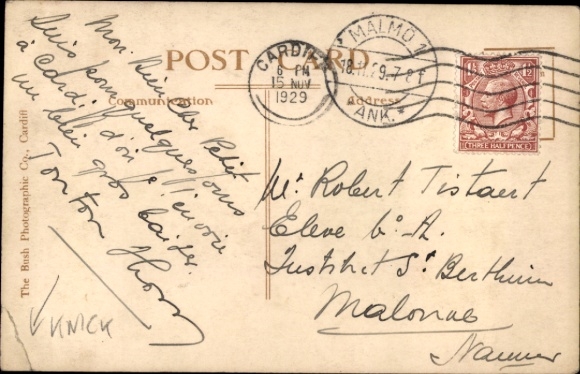 POST CARD.
Communication
Address
The Bush Photographic Co., Cardiff
CARDIFF
6 PM
15 NOV
1929
MALMÖ 1
18.11.29.7-8 F
* ANK. *
THREE HALF PENCE
Mon Bien cher Petit
Suis pour quelques jours
à Cardiff d'où t'envoie
un bien gros baiser.
Tonton
Mr Robert Tistaert
Eleve
Institut St Berthuin
Malonne
Namur
KNICK